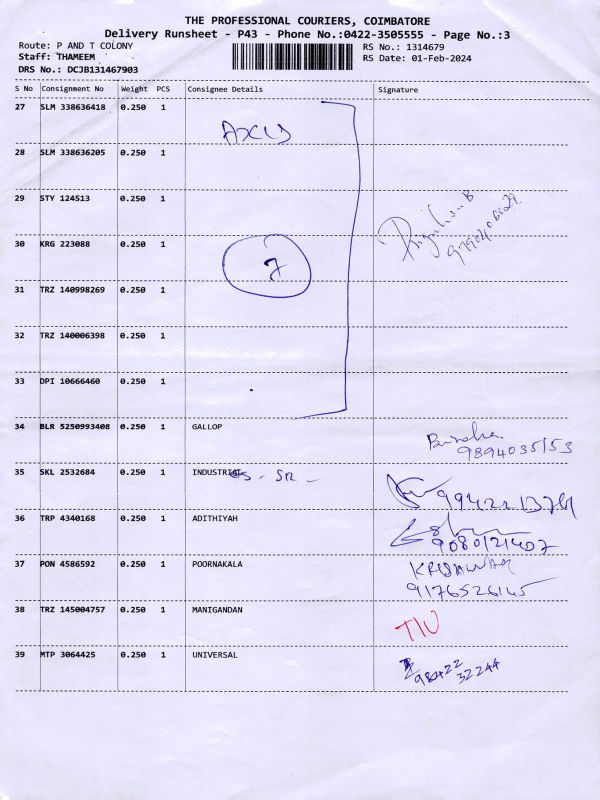 THE PROFESSIONAL COURIERS, COIMBATORE
Delivery Runsheet - P43 - Phone No.:0422-3505555 - Page No.:3
Route: P AND T COLONY
RS No.: 1314679
Staff: THAMEEM
RS Date: 01-Feb-2024
DRS No.: DCJB131467903
S No Consignment No Weight PCS Consignee Details Signature
27 SLM 338636418 0.250 1
AXIS
28 SLM 338636205 0.250 1
29 STY 124513 0.250 1
30 KRG 223088 0.250 1
7
31 TRZ 140998269 0.250 1
32 TRZ 140006398 0.250 1
33 DPI 10666460 0.250 1
34 BLR 5250993408 0.250 1 GALLOP
9894035153
35 SKL 2532684 0.250 1 INDUSTRIAL
36 TRP 4340168 0.250 1 ADITHIYAH
9080121407
37 PON 4586592 0.250 1 POORNAKALA
9176526145
38 TRZ 145004757 0.250 1 MANIGANDAN
39 MTP 3064425 0.250 1 UNIVERSAL
98422
32244